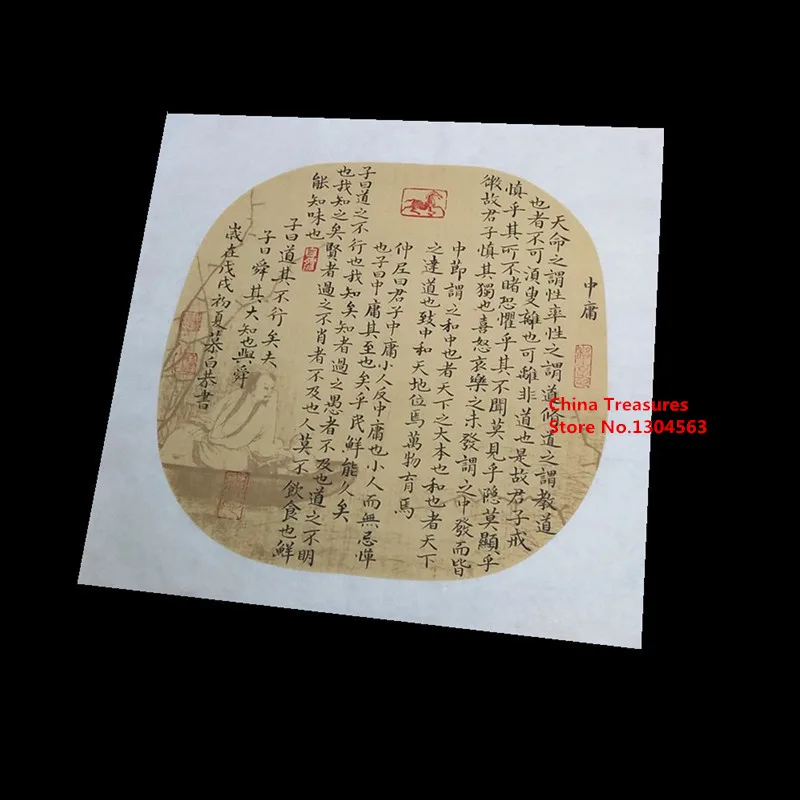 中庸
天命之謂性率性之謂道脩道之謂教道
也者不可須臾離也可離非道也是故君子戒
慎乎其所不睹恐懼乎其不聞莫見乎隐莫顯乎
微故君子慎其獨也喜怒哀樂之未發謂之中發而皆
中節謂之和中也者天下之大本也和也者天下
之達道也致中和天地位焉萬物育焉
仲尼曰君子中庸小人反中庸也小人而無忌憚
也子曰中庸其至也矣乎民鮮能久矣
子曰道之不行也我知矣知者過之愚者不及也道之不明
也我知之矣賢者過之不肖者不及也人莫不飲食也鮮
能知味也
子曰道其不行矣夫
子曰舜其大知也與舜
歲在戊戌初夏慕白恭書
China Treasures
Store No.1304563